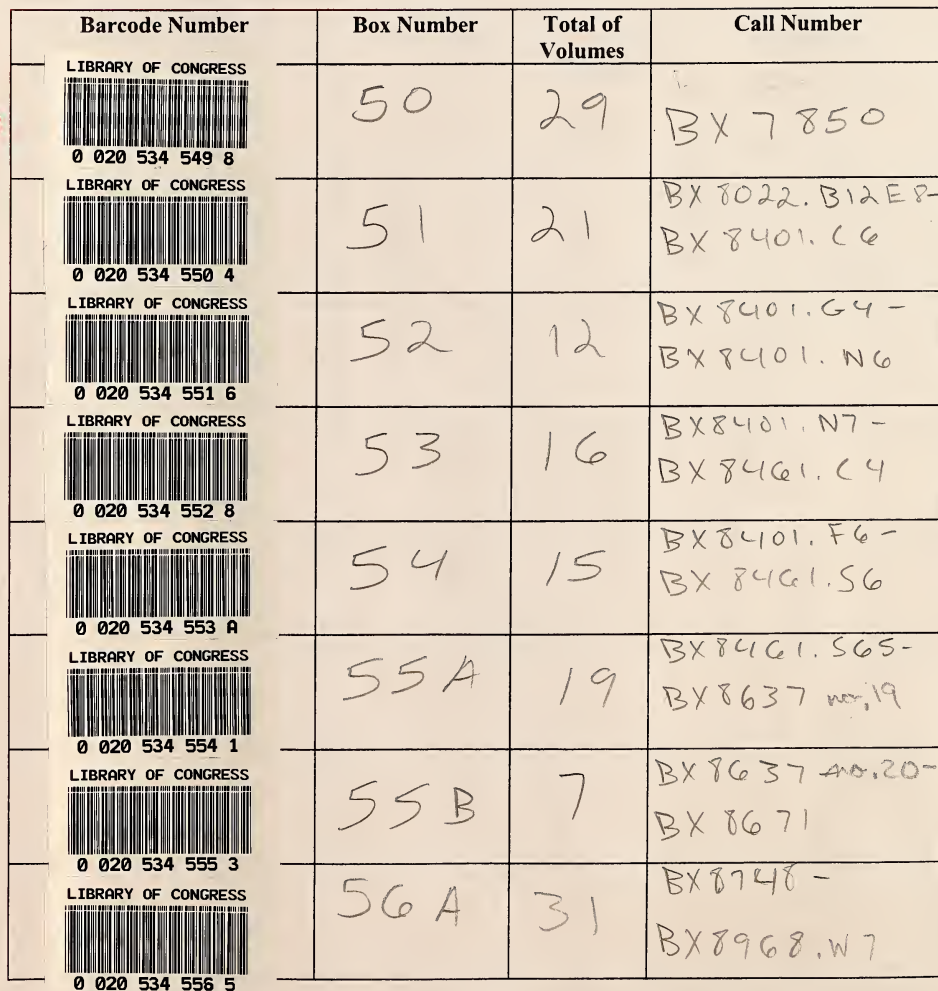 Barcode Number Box Number Total of Volumes Call Number
LIBRARY OF CONGRESS
0 020 534 549 8
50 29 BX 7850
LIBRARY OF CONGRESS
0 020 534 550 4
51 21 BX 8022.B12E8-
BX 8401.C6
LIBRARY OF CONGRESS
0 020 534 551 6
52 12 BX 8401.G4-
BX 8401.N6
LIBRARY OF CONGRESS
0 020 534 552 8
53 16 BX8401.N7-
BX 8461.C4
LIBRARY OF CONGRESS
0 020 534 553 A
54 15 BX8401.F6-
BX 8461.S6
LIBRARY OF CONGRESS
0 020 534 554 1
55A 19 BX8461.S65-
BX8637 no.19
LIBRARY OF CONGRESS
0 020 534 555 3
55B 7 BX8637 no.20-
BX 8671
LIBRARY OF CONGRESS
0 020 534 556 5
56A 31 BX8748-
BX8968.W7